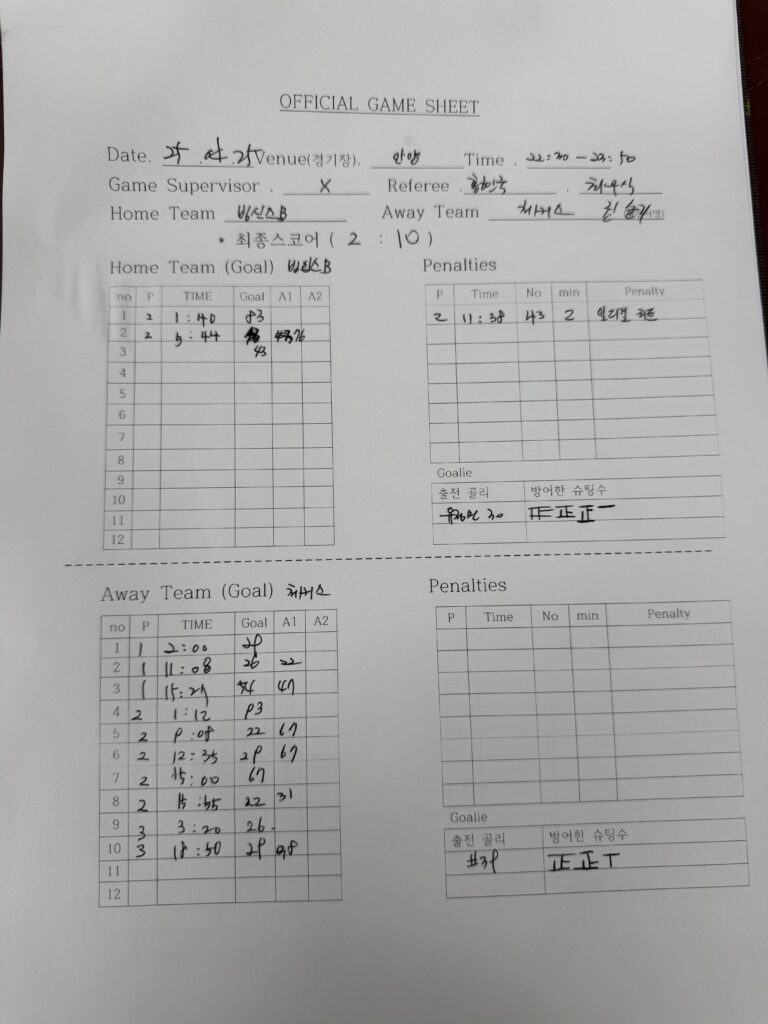 OFFICIAL GAME SHEET
Date. 25 . 04 . 25 Venue(경기장). 안양 Time . 22:30 - 23:50
Game Supervisor . X Referee .
Home Team 빙신스B Away Team
* 최종스코어 ( 2 : 10 )
Home Team (Goal) 빙신스B
no P TIME Goal A1 A2
1 2 1:40 83
2 2 5:44 43 76
3
4
5
6
7
8
9
10
11
12
Penalties
P Time No min Penalty
2 11:38 43 2 일리걸 히트
Goalie
출전 골리 방어한 슈팅수
30 正正正一
Away Team (Goal)
no P TIME Goal A1 A2
1 1 2:00 29
2 1 11:08 26 22
3 1 15:29 54 47
4 2 1:12 93
5 2 9:08 22 67
6 2 12:35 29 67
7 2 15:00 67
8 2 15:55 22 31
9 3 3:20 26
10 3 18:50 29 98
11
12
Penalties
P Time No min Penalty
Goalie
출전 골리 방어한 슈팅수
#39 正正丅